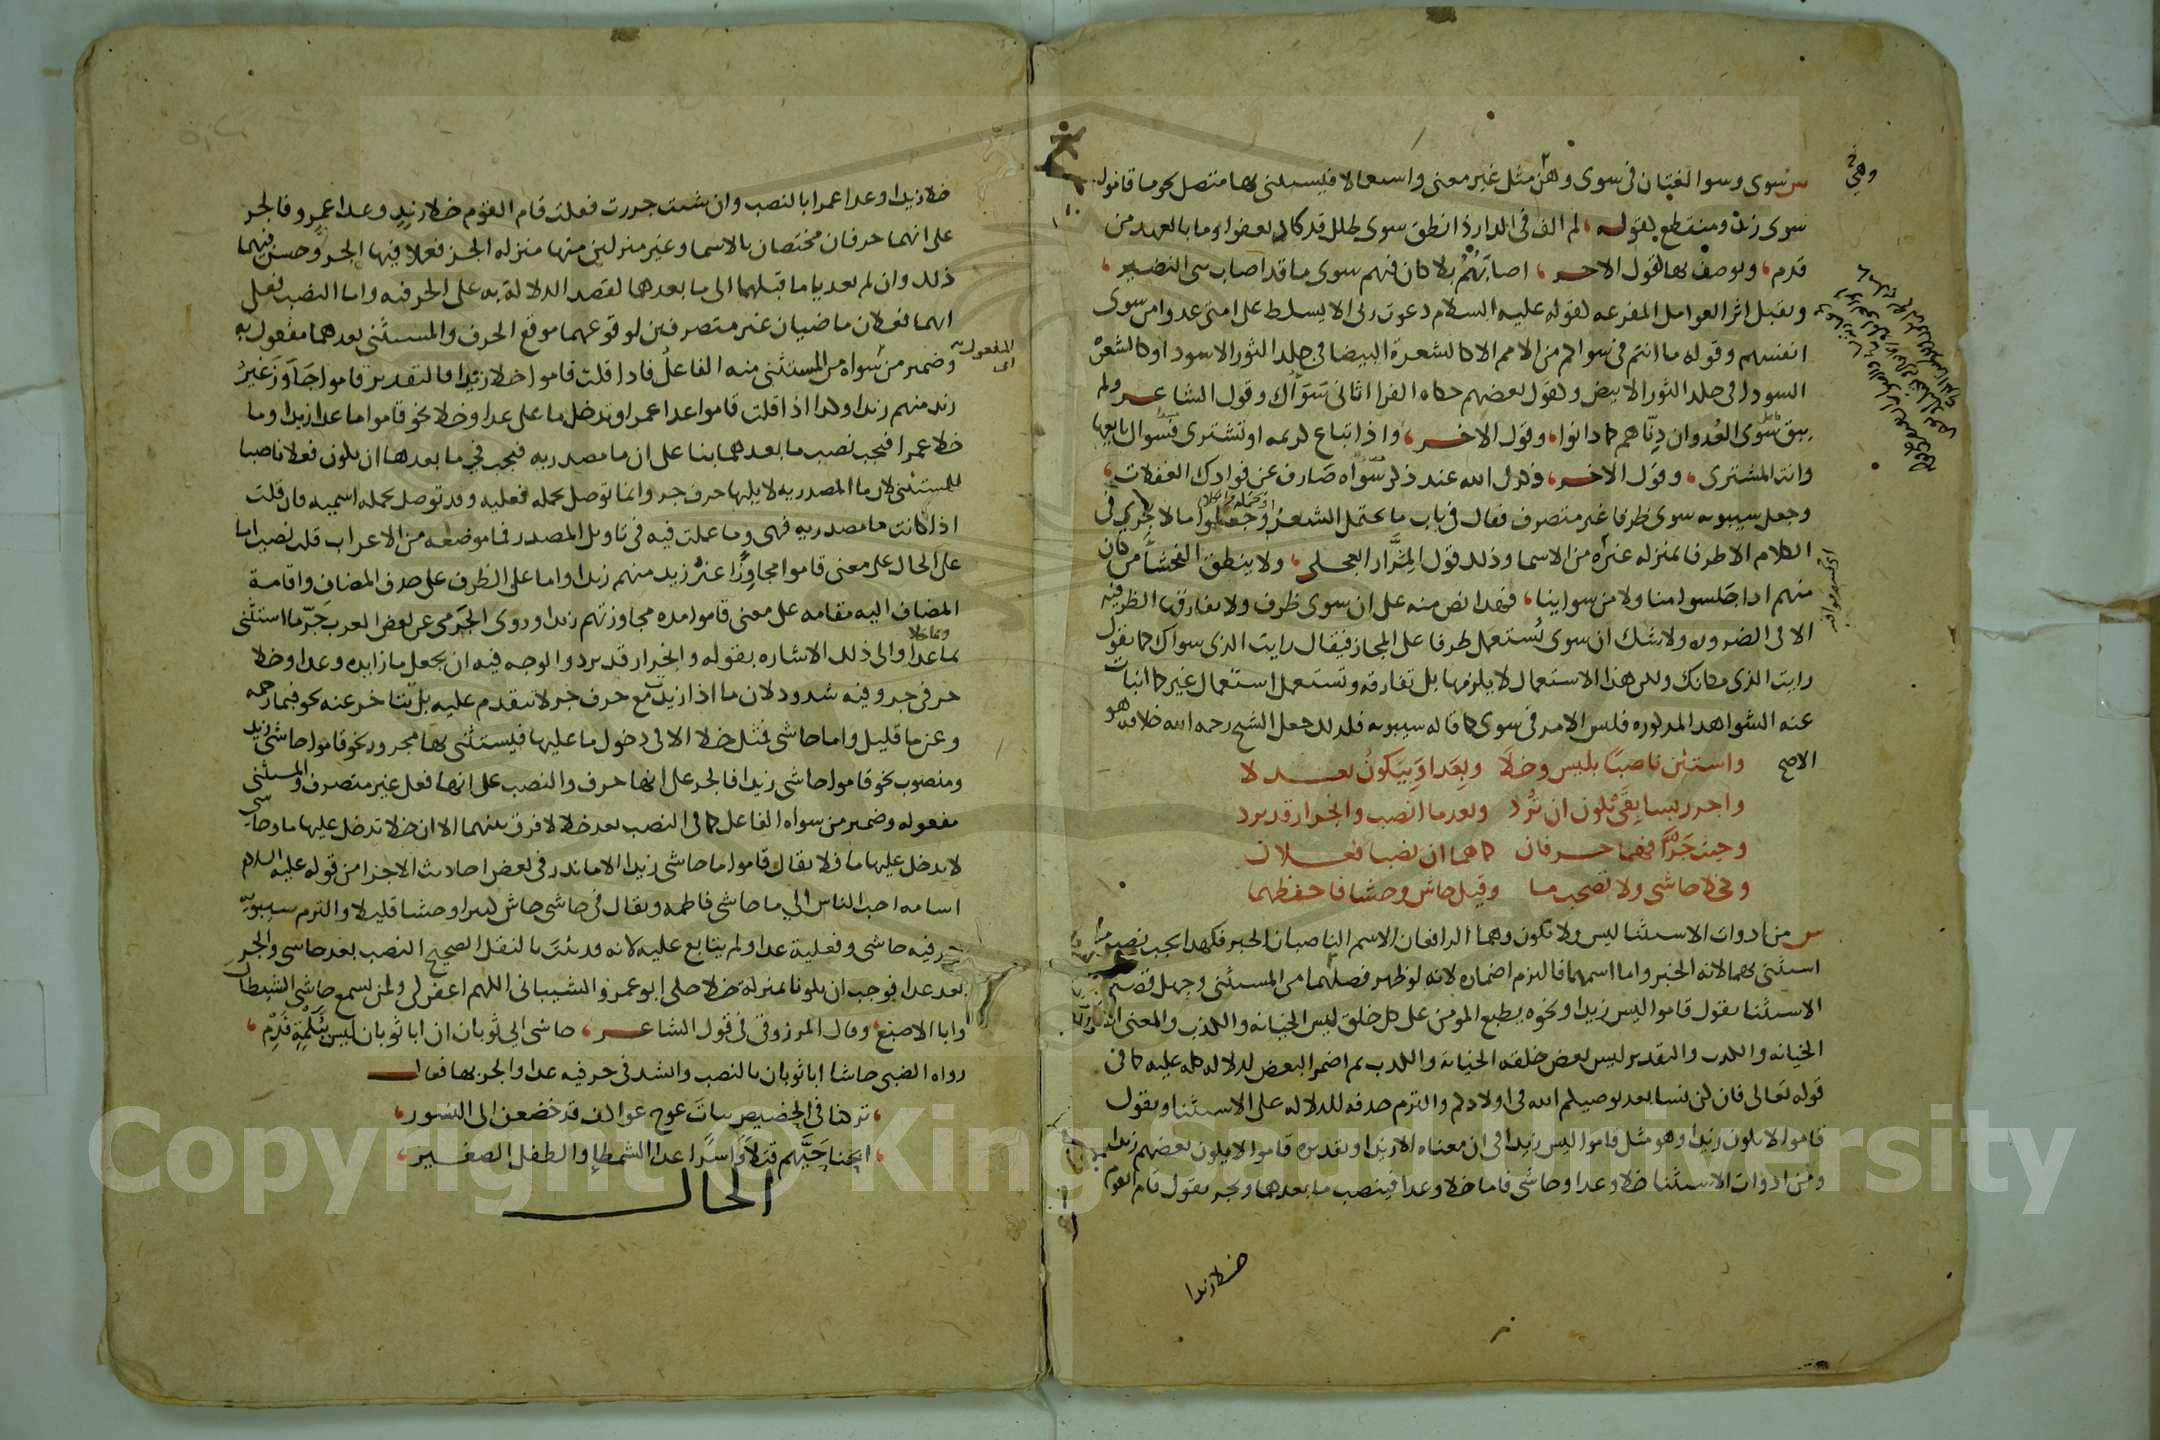 س سوى وسوا لغتان في سوى وهي مثل غير معنى واستعمالا فيستثنى بها متصل نحو ما قاموا
سوى زيد ومنقطع كقوله لم الف في الدار ذا نطق سوى طلل قد كاد يعفو وما بالعهد من
قدم وتوصف بها كقول الاخر اصابهم بلا كان فيهم سوى ما قد اصاب بني النضير
وتقبل اثر العوامل المفرغه كقوله عليه السلام دعوت ربى الا يسلط على امتى عدوا من سوى
انفسهم وقوله ما انتم في سواكم من الامم الا كالشعرة البيضا في جلد الثور الاسود او كالشعرة
السودا في جلد الثور الابيض وكقول بعضهم حكاه الفرا اتانى سواك وقول الشاعر ولم
يبق سوى العدوان دناهم كما دانوا وقول الاخر واذا تباع كريمه او تشترى فسواك بايعها
وانت المشترى وقول الاخر وذكرك الله عند ذكر سواه صارف عن فوادك الغفلات
وجعل سيبويه سوى ظرفا غير متصرف فقال في باب ما يحتمل الشعر وجعلوا ما لا يجري في
الكلام الا ظرفا بمنزلة غيره من الاسما وذلك قول المرار العجلي ولا ينطق الفحشا من كان
منهم اذا جلسوا منا ولا من سواينا فهذا نص منه على ان سوى ظرف ولا تفارقها الظرفيه
الا في الضروره ولا شك ان سوى تستعمل ظرفا على المجاز فيقال رايت الذى سواك كما تقول
رايت الذى مكانك ولكن هذا الاستعمال لا يلزمها بل تفارقه وتستعمل استعمال غير كما انبات
عنه الشواهد المذكوره فليس الامر في سوى كما قاله سيبويه فلذلك جعل الشيخ رحمه الله خلافه هو
الاصح
واستثن ناصبا بليس وخلا وبعدا وبيكون بعد لا
واجرر بسابقي يكون ان ترد وبعد ما انصب وانجرار قد يرد
وحيث جرا فهما حرفان كما هما ان نصبا فعلان
وكخلا حاشى ولا تصحب ما وقيل حاش وحشا فاحفظهما
س من ادوات الاستثنا ليس ولا يكون وهما الرافعان الاسم الناصبان الخبر فلهذا يجب نصب ما
استثنى بهما لانه الخبر واما اسمهما فالتزم اضماره لانه لو ظهر فصلهما من المستثنى وجهل قصد
الاستثنا تقول قاموا ليس زيدا ونحوه يطبع المومن على كل خلق ليس الخيانه والكذب والمعنى الا
الخيانه والكذب والتقدير ليس بعض خلقه الخيانة والكذب ثم اضمر البعض لدلاله كله عليه كما في
قوله تعالى فان كن نسا بعد يوصيكم الله في اولادكم والتزم حذفه للدلاله على الاستثنا وتقول
قاموا لا يكون زيدا وهو مثل قاموا ليس زيدا في ان معناه الا زيدا وتقديره قاموا لا يكون بعضهم زيدا
ومن ادوات الاستثنا خلا وعدا وحاشى فاما خلا وعدا فينصب ما بعدهما ويجر تقول قام القوم
خلا زيدا
خلا زيدا وعدا عمرا بالنصب وان شئت جررت فقلت قام القوم خلا زيد وعدا عمرو فالجر
على انهما حرفان مختصان بالاسما وغير منزلين منها منزله الجز فعلا فيها الجر وحسن فيهما
ذلك وان لم يعديا ما قبلهما الى ما بعدهما لقصد الدلالة به على الحرفيه واما النصب فعلى
انهما فعلان ماضيان غير متصرفين لوقوعهما موقع الحرف والمستثنى بعدهما مفعول به
وضمير من سواه من المستثنى منه الفاعل فاذا قلت قاموا خلا زيدا فالتقدير قاموا جاوز غير
زيد منهم زيدا وكذا اذا قلت قاموا عدا عمرا وتدخل ما على عدا وخلا نحو قاموا ما عدا زيدا وما
خلا عمرا فيجب نصب ما بعدهما بنا على ان ما مصدريه فيجب في ما بعدها ان يكون فعلا ناصبا
للمستثنى لان ما المصدريه لا يليها حرف جر وانما توصل بجمله فعليه وقد توصل بجمله اسميه فان قلت
اذا كانت ما مصدريه فهى وما عملت فيه في تاويل المصدر فما موضعه من الاعراب قلت نصب اما
على الحال على معنى قاموا مجاوزا غير زيد منهم زيدا واما على الظرف على حذف المضاف واقامة
المضاف اليه مقامه على معنى قاموا مده مجاوزتهم زيدا وروى الجرمى عن بعض العرب جر ما استثنى
بما عدا وما خلا والى ذلك الاشاره بقوله وانجرار قد يرد والوجه فيه ان يجعل ما زايده وعدا وخلا
حرفي جر وفيه شذوذ لان ما اذا زيدت مع حرف جر لا تتقدم عليه بل تتاخر عنه نحو فبما رحمه
وعن ما قليل واما حاشى فمثل خلا الا في دخول ما عليها فيستثنى بها مجرور نحو قاموا حاشى زيد
ومنصوب نحو قاموا حاشى زيدا فالجر على انها حرف والنصب على انها فعل غير متصرف والمستثنى
مفعوله وضمير من سواه الفاعل كما في النصب بعد خلا لا فرق بينهما الا ان خلا تدخل عليها ما وحاشى
لا تدخل عليها ما فلا يقال قاموا ما حاشى زيدا الا ما ندر في بعض احاديث الاجزا من قوله عليه السلام
اسامه احب الناس الي ما حاشى فاطمه ويقال في حاشى حاش كثيرا وحشا قليلا والتزم سيبويه
حرفيه حاشى وفعلية عدا ولم يتابع عليه لانه قد ثبت بالنقل الصحيح النصب بعد حاشى والجر
بعد عدا فوجب ان يكونا بمنزلة خلا حكى ابو عمرو الشيبانى اللهم اغفر لى ولمن يسمع حاشى الشيطان
وابا الاصبغ وقال المرزوقى في قول الشاعر حاشى ابي ثوبان ان ابا ثوبان ليس ببكمة فدم
رواه الضبي حاشا ابا ثوبان بالنصب وانشد في حرفيه عدا والجر بها فقال
تركنا في الحضيض بنات عوج عواكف قد خضعن الى النسور
ابحنا حيهم قتلا واسرا عدا الشمطا والطفل الصغير
الحال